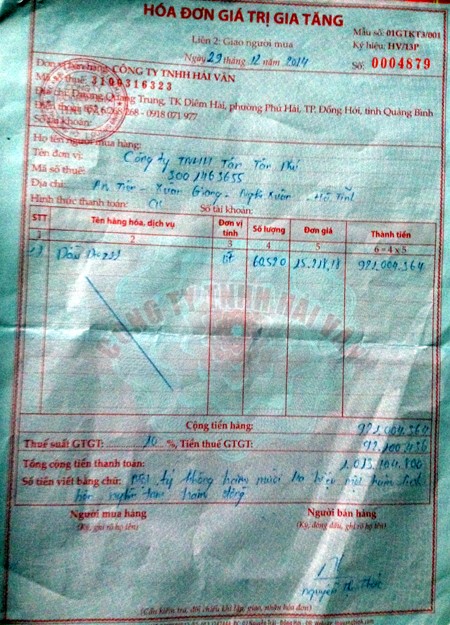 HÓA ĐƠN GIÁ TRỊ GIA TĂNG
Liên 2: Giao người mua
Mẫu số: 01GTKT3/001
Ký hiệu: HV/13P
Ngày 29 tháng 12 năm 2014
Số: 0004879
Đơn vị bán hàng: CÔNG TY TNHH HẢI VÂN
Mã số thuế: 3100316323
Địa chỉ: Đường Quang Trung, TK Diêm Hải, phường Phú Hải, TP. Đồng Hới, tỉnh Quảng Bình
Điện thoại: - 0918 071 977
Số tài khoản:
Họ tên người mua hàng:
Tên đơn vị: Công ty TNHH Tân Tân Phú
Mã số thuế: 3001463655
Địa chỉ: Tiên - Xuân Giang - Xuân - Hà Tĩnh
Hình thức thanh toán: CK Số tài khoản:
STT Tên hàng hóa, dịch vụ Đơn vị tính Số lượng Đơn giá Thành tiền
1 2 3 4 5 6 = 4 x 5
Dầu 60520 15.218,18 921.004.364
CÔNG TY TNHH HẢI VÂN
Cộng tiền hàng: 921.004.364
Thuế suất GTGT: 10 %, Tiền thuế GTGT: 92.100.436
Tổng cộng tiền thanh toán: 1.013.104.800
Số tiền viết bằng chữ: Một tỷ không trăm mười ba triệu một trăm linh
bốn nghìn tám trăm đồng
Người mua hàng Người bán hàng
(Ký, ghi rõ họ tên) (Ký, đóng dấu, ghi rõ họ tên)
Nguyễn Thị
(Cần kiểm tra, đối chiếu khi lập, giao, nhận hóa đơn)